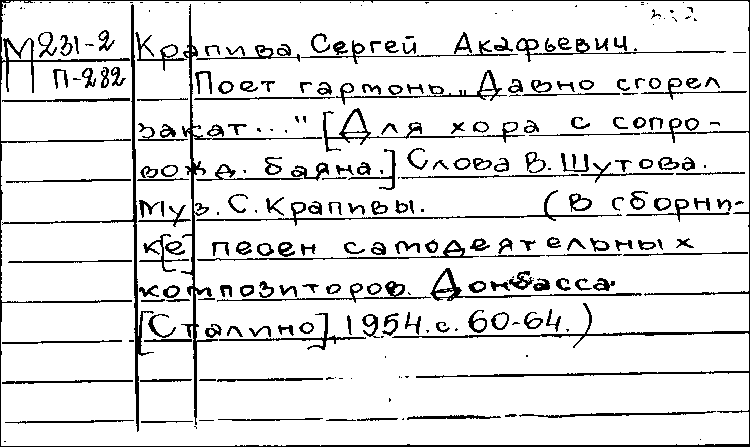 М231-2 Крапива, Сергей Акафьевич.
П-282 Поет гармонь. „Давно сгорел
закат..." [Для хора с сопро-
вожд. баяна.] Слова В. Шутова.
Муз. С. Крапивы. (В сборни-
к[е] песен самодеятельных
композиторов Донбасса.
[Сталино], 1954. с. 60-64.)